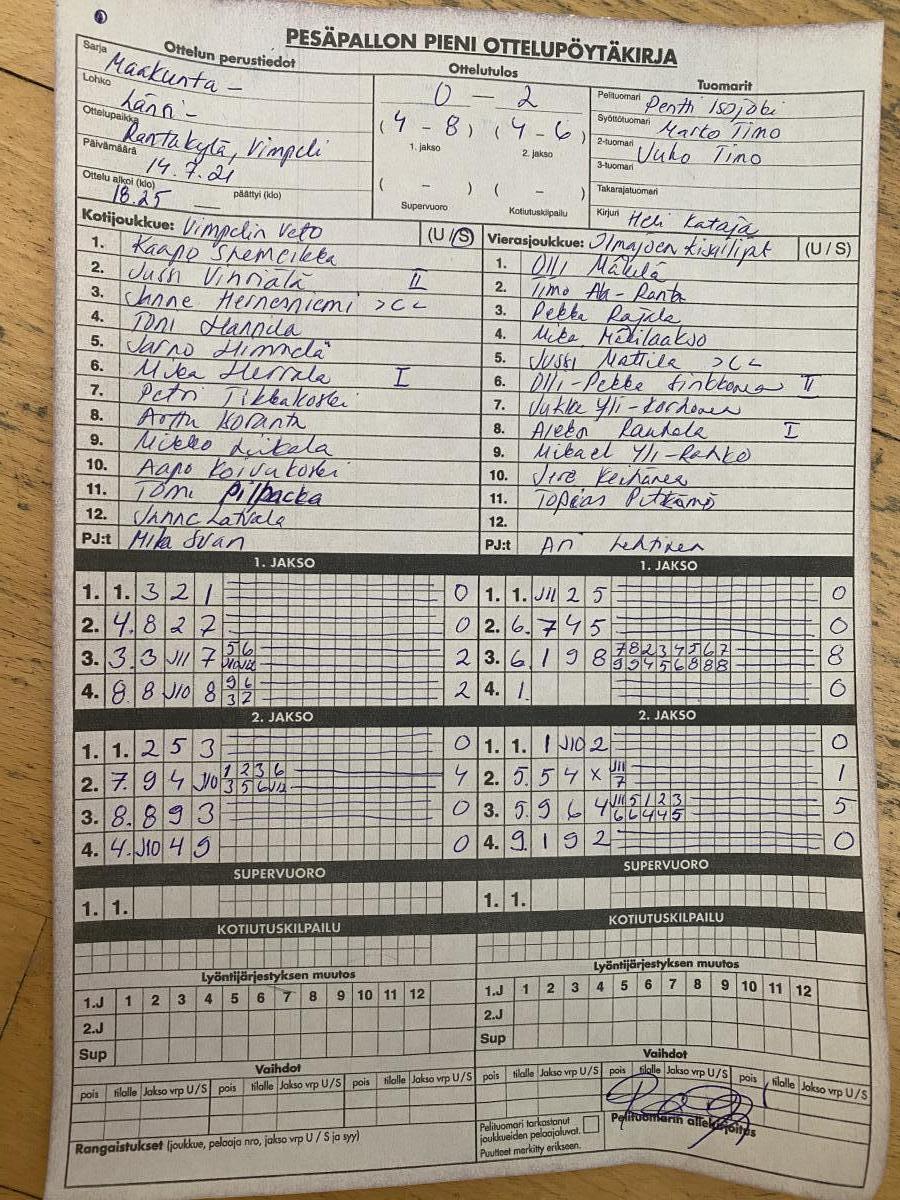 PESÄPALLON PIENI OTTELUPÖYTÄKIRJA
Ottelun perustiedot
Sarja Maakunta -
Lohko Länsi -
Ottelupaikka Rantakylä, Vimpeli
Päivämäärä 14.7.21
Ottelu alkoi (klo) 18.25 päättyi (klo)
Ottelutulos
0 - 2
(4 - 8) (4 - 6)
1. jakso 2. jakso
( - ) ( - )
Supervuoro Kotiutuskilpailu
Tuomarit
Pelituomari Pentti Isojoki
Syöttötuomari Marko Timo
2-tuomari Juho Timo
3-tuomari
Takarajatuomari
Kirjuri Heli Kataja
Kotijoukkue: Vimpelin Veto (U / S)
1. Kaapo Shemeikka
2. Jussi II
3. Janne Hernesniemi >C<
4. Toni Hannila
5. Jarno
6. Mika Herrala I
7. Petri Tikkakoski
8. Arttu Koranta
9. Mikko Liikala
10. Aapo Koivukoski
11. Tomi Pilpacka
12. Janne Latvala
PJ:t Mika Svan
Vierasjoukkue: Ilmajoen Kisailijat (U / S)
1. Olli Mäkelä
2. Timo Ala-Ranta
3. Pekka Rajala
4. Mika Mäkilaakso
5. Jussi Mattila >C<
6. Olli-Pekka Sinkkonen II
7. Jukka Yli-Korhonen
8. Rauhala I
9. Mikael Yli-Rahko
10. Jere Keihänen
11. Topias Pitkämö
12.
PJ:t Ari Lehtinen
1. JAKSO
1. 1. 3 2 1 0
2. 4. 8 2 7 0
3. 3. 3 J11 7 2
4. 8. 8 J10 8 9 6 2
3 2
1. JAKSO
1. 1. J11 2 5 0
2. 6. 7 4 5 0
3. 6. 1 9 8 7 8 2 3 4 5 6 7 8
9 9 4 5 6 8 8 8
4. 1. 0
2. JAKSO
1. 1. 2 5 3 0
2. 7. 9 4 J10 1 2 3 6 4
3 5 6 J12
3. 8. 8 9 3 0
4. 4. J10 4 9 0
2. JAKSO
1. 1. 1 J10 2 0
2. 5. 5 4 x J11 1
7
3. 5. 9 6 4 J11 5 1 2 3 5
6 6 4 4 5
4. 9. 1 9 2 0
SUPERVUORO
1. 1.
SUPERVUORO
1. 1.
KOTIUTUSKILPAILU
KOTIUTUSKILPAILU
Lyöntijärjestyksen muutos
1.J 1 2 3 4 5 6 7 8 9 10 11 12
2.J
Sup
Lyöntijärjestyksen muutos
1.J 1 2 3 4 5 6 7 8 9 10 11 12
2.J
Sup
Vaihdot
pois tilalle Jakso vrp U/S pois tilalle Jakso vrp U/S pois tilalle Jakso vrp U/S
Vaihdot
pois tilalle Jakso vrp U/S pois tilalle Jakso vrp U/S pois tilalle Jakso vrp U/S
Rangaistukset (joukkue, pelaaja nro, jakso vrp U / S ja syy)
Pelituomari tarkastanut
joukkueiden pelaajaluvat.
Puutteet merkitty erikseen.
Pelituomarin allekirjoitus